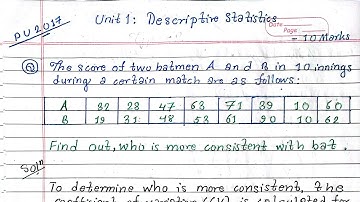 PU2017
Unit 1: Descriptive Statistics
Date
Page
- 10 Marks
Q The score of two batmen A and B in 10 innings
during a certain match are as follows:
A 32 28 47 63 71 39 10 60
B 19 31 48 53 61 90 10 62
Find out, who is more consistent with bat.
Solⁿ
To determine who is more consistent, the
coefficient of variation (CV) is calculated for